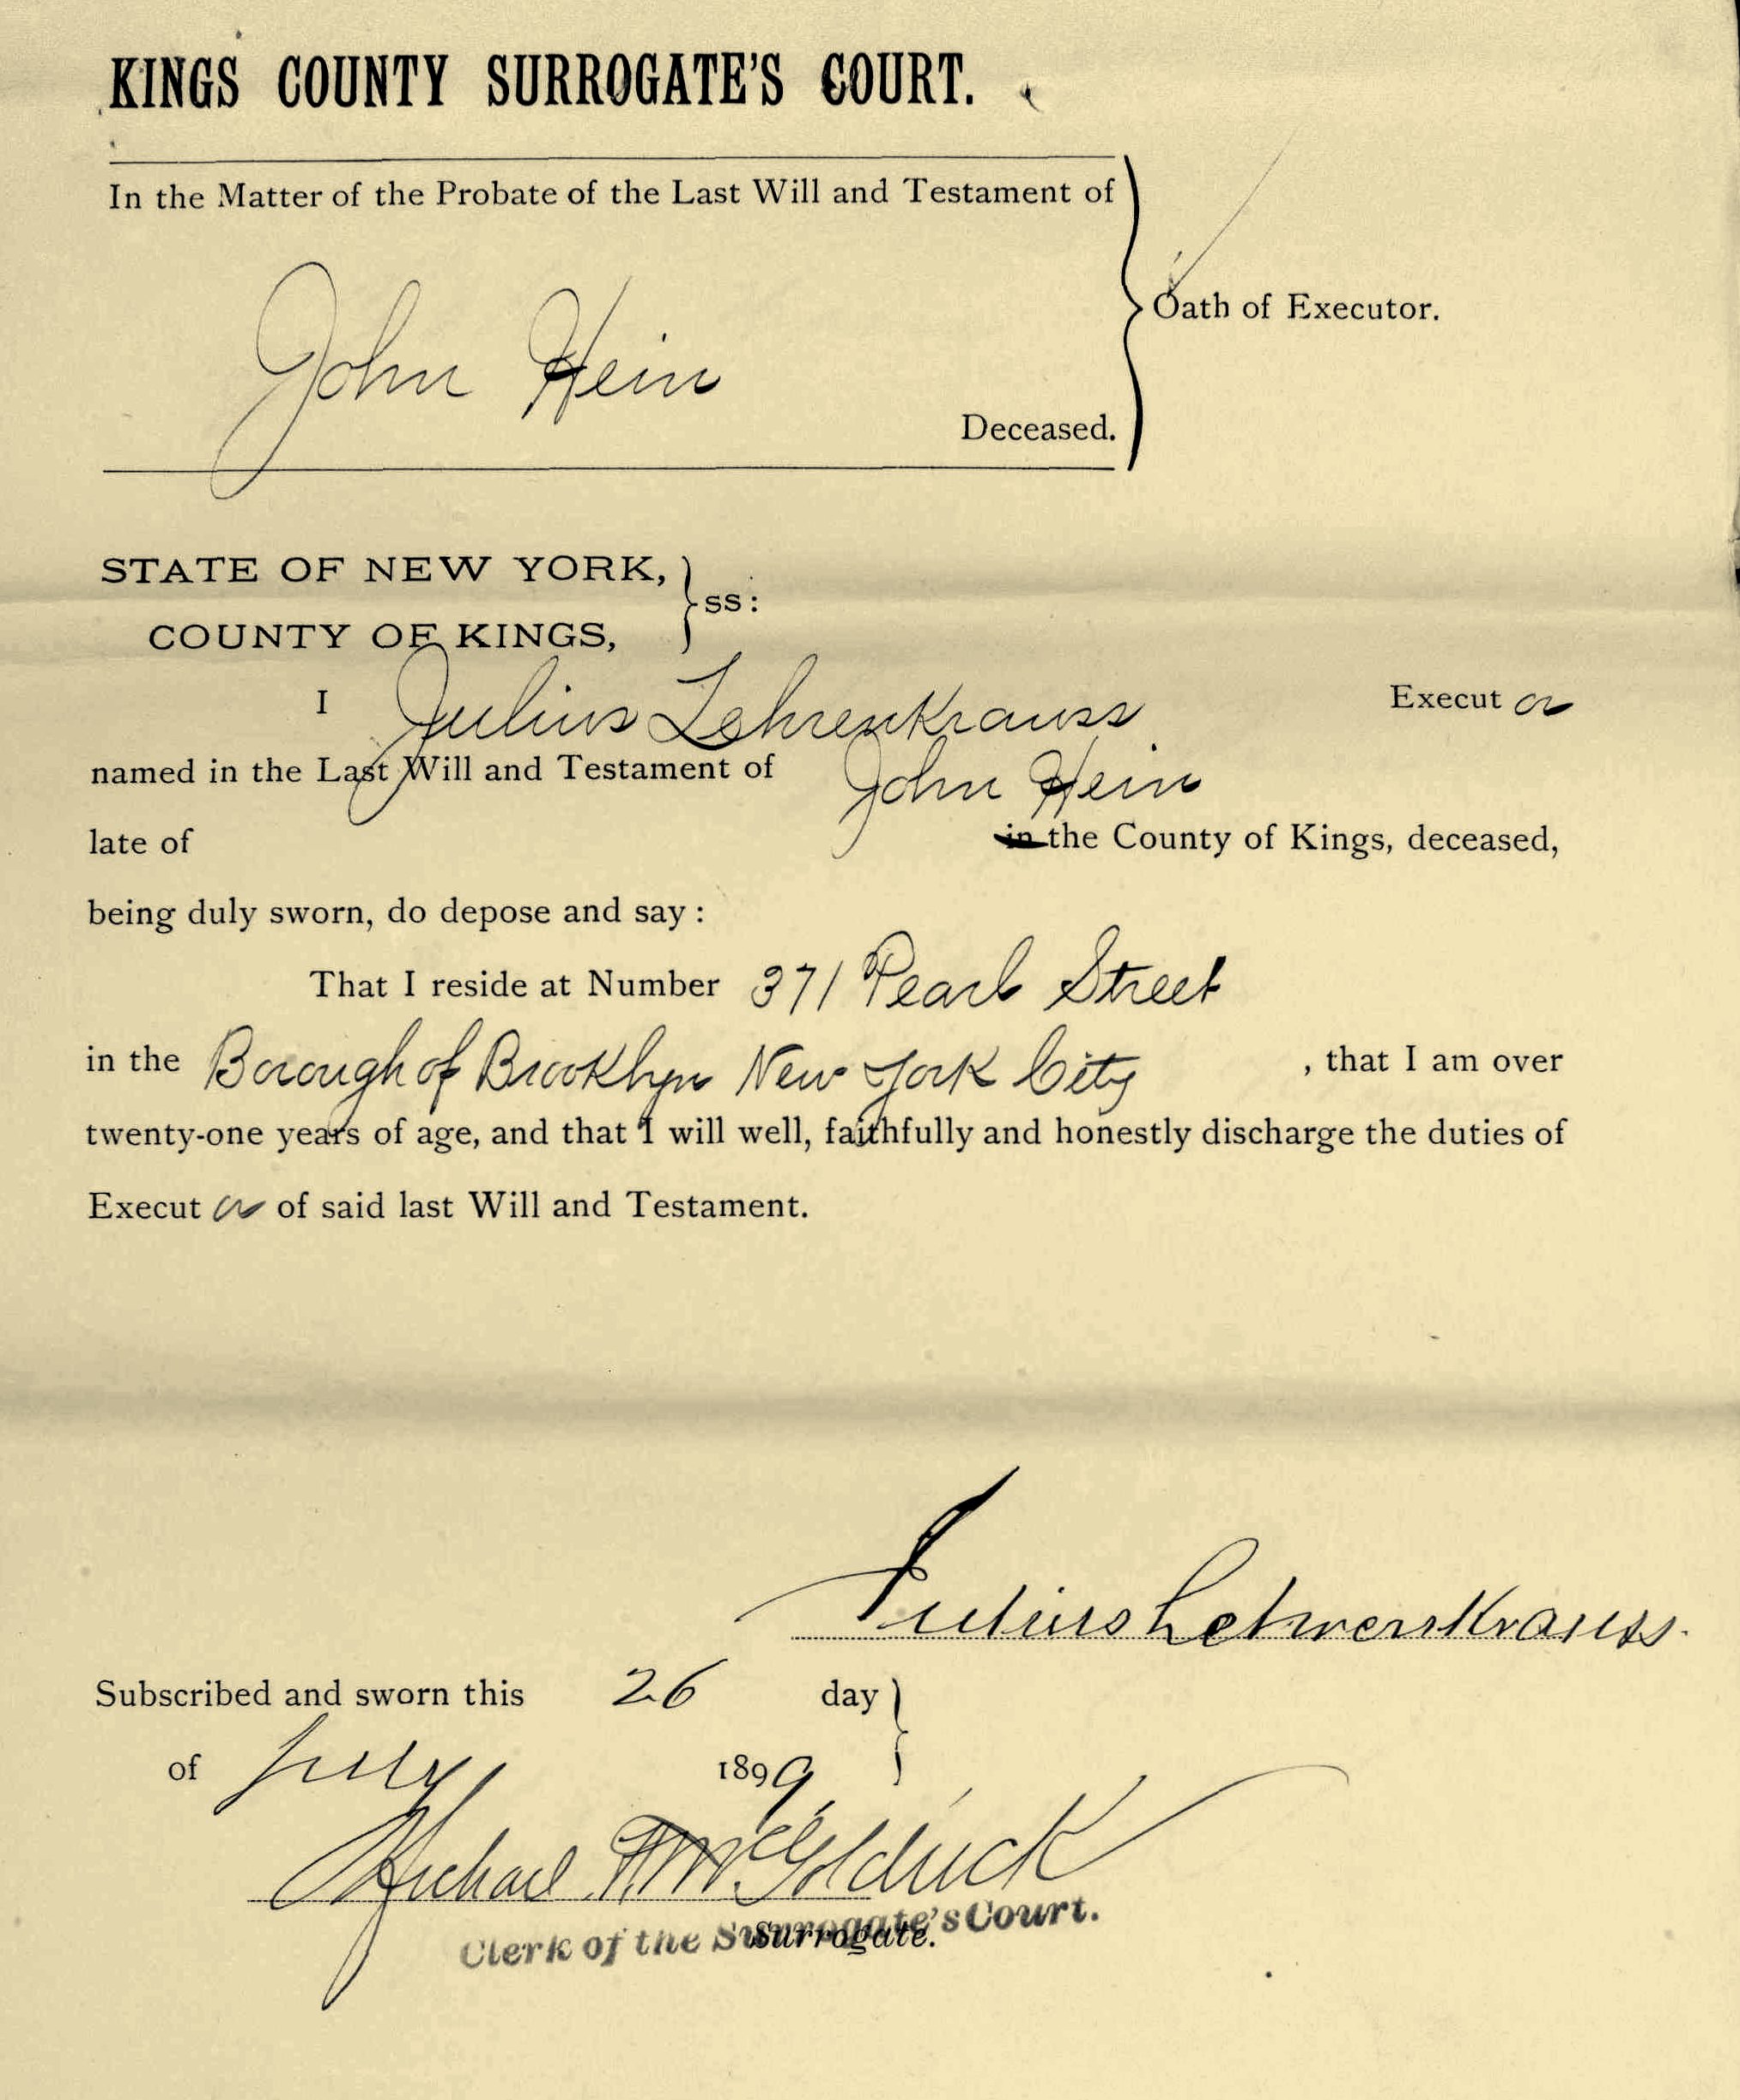 KINGS COUNTY SURROGATE'S COURT.
In the Matter of the Probate of the Last Will and Testament of
John Hein
Deceased.
Oath of Executor.
STATE OF NEW YORK,
COUNTY OF KINGS,
ss:
I Julius Lehrenkrauss Execut or
named in the Last Will and Testament of John Hein
late of in the County of Kings, deceased,
being duly sworn, do depose and say:
That I reside at Number 371 Pearl Street
in the Borough of Brooklyn New York City , that I am over
twenty-one years of age, and that I will well, faithfully and honestly discharge the duties of
Execut or of said last Will and Testament.
Julius Lehrenkrauss.
Subscribed and sworn this 26 day
of July 1899
Michael F. McGoldrick
Clerk of the Surrogate's Court.
Surrogate.